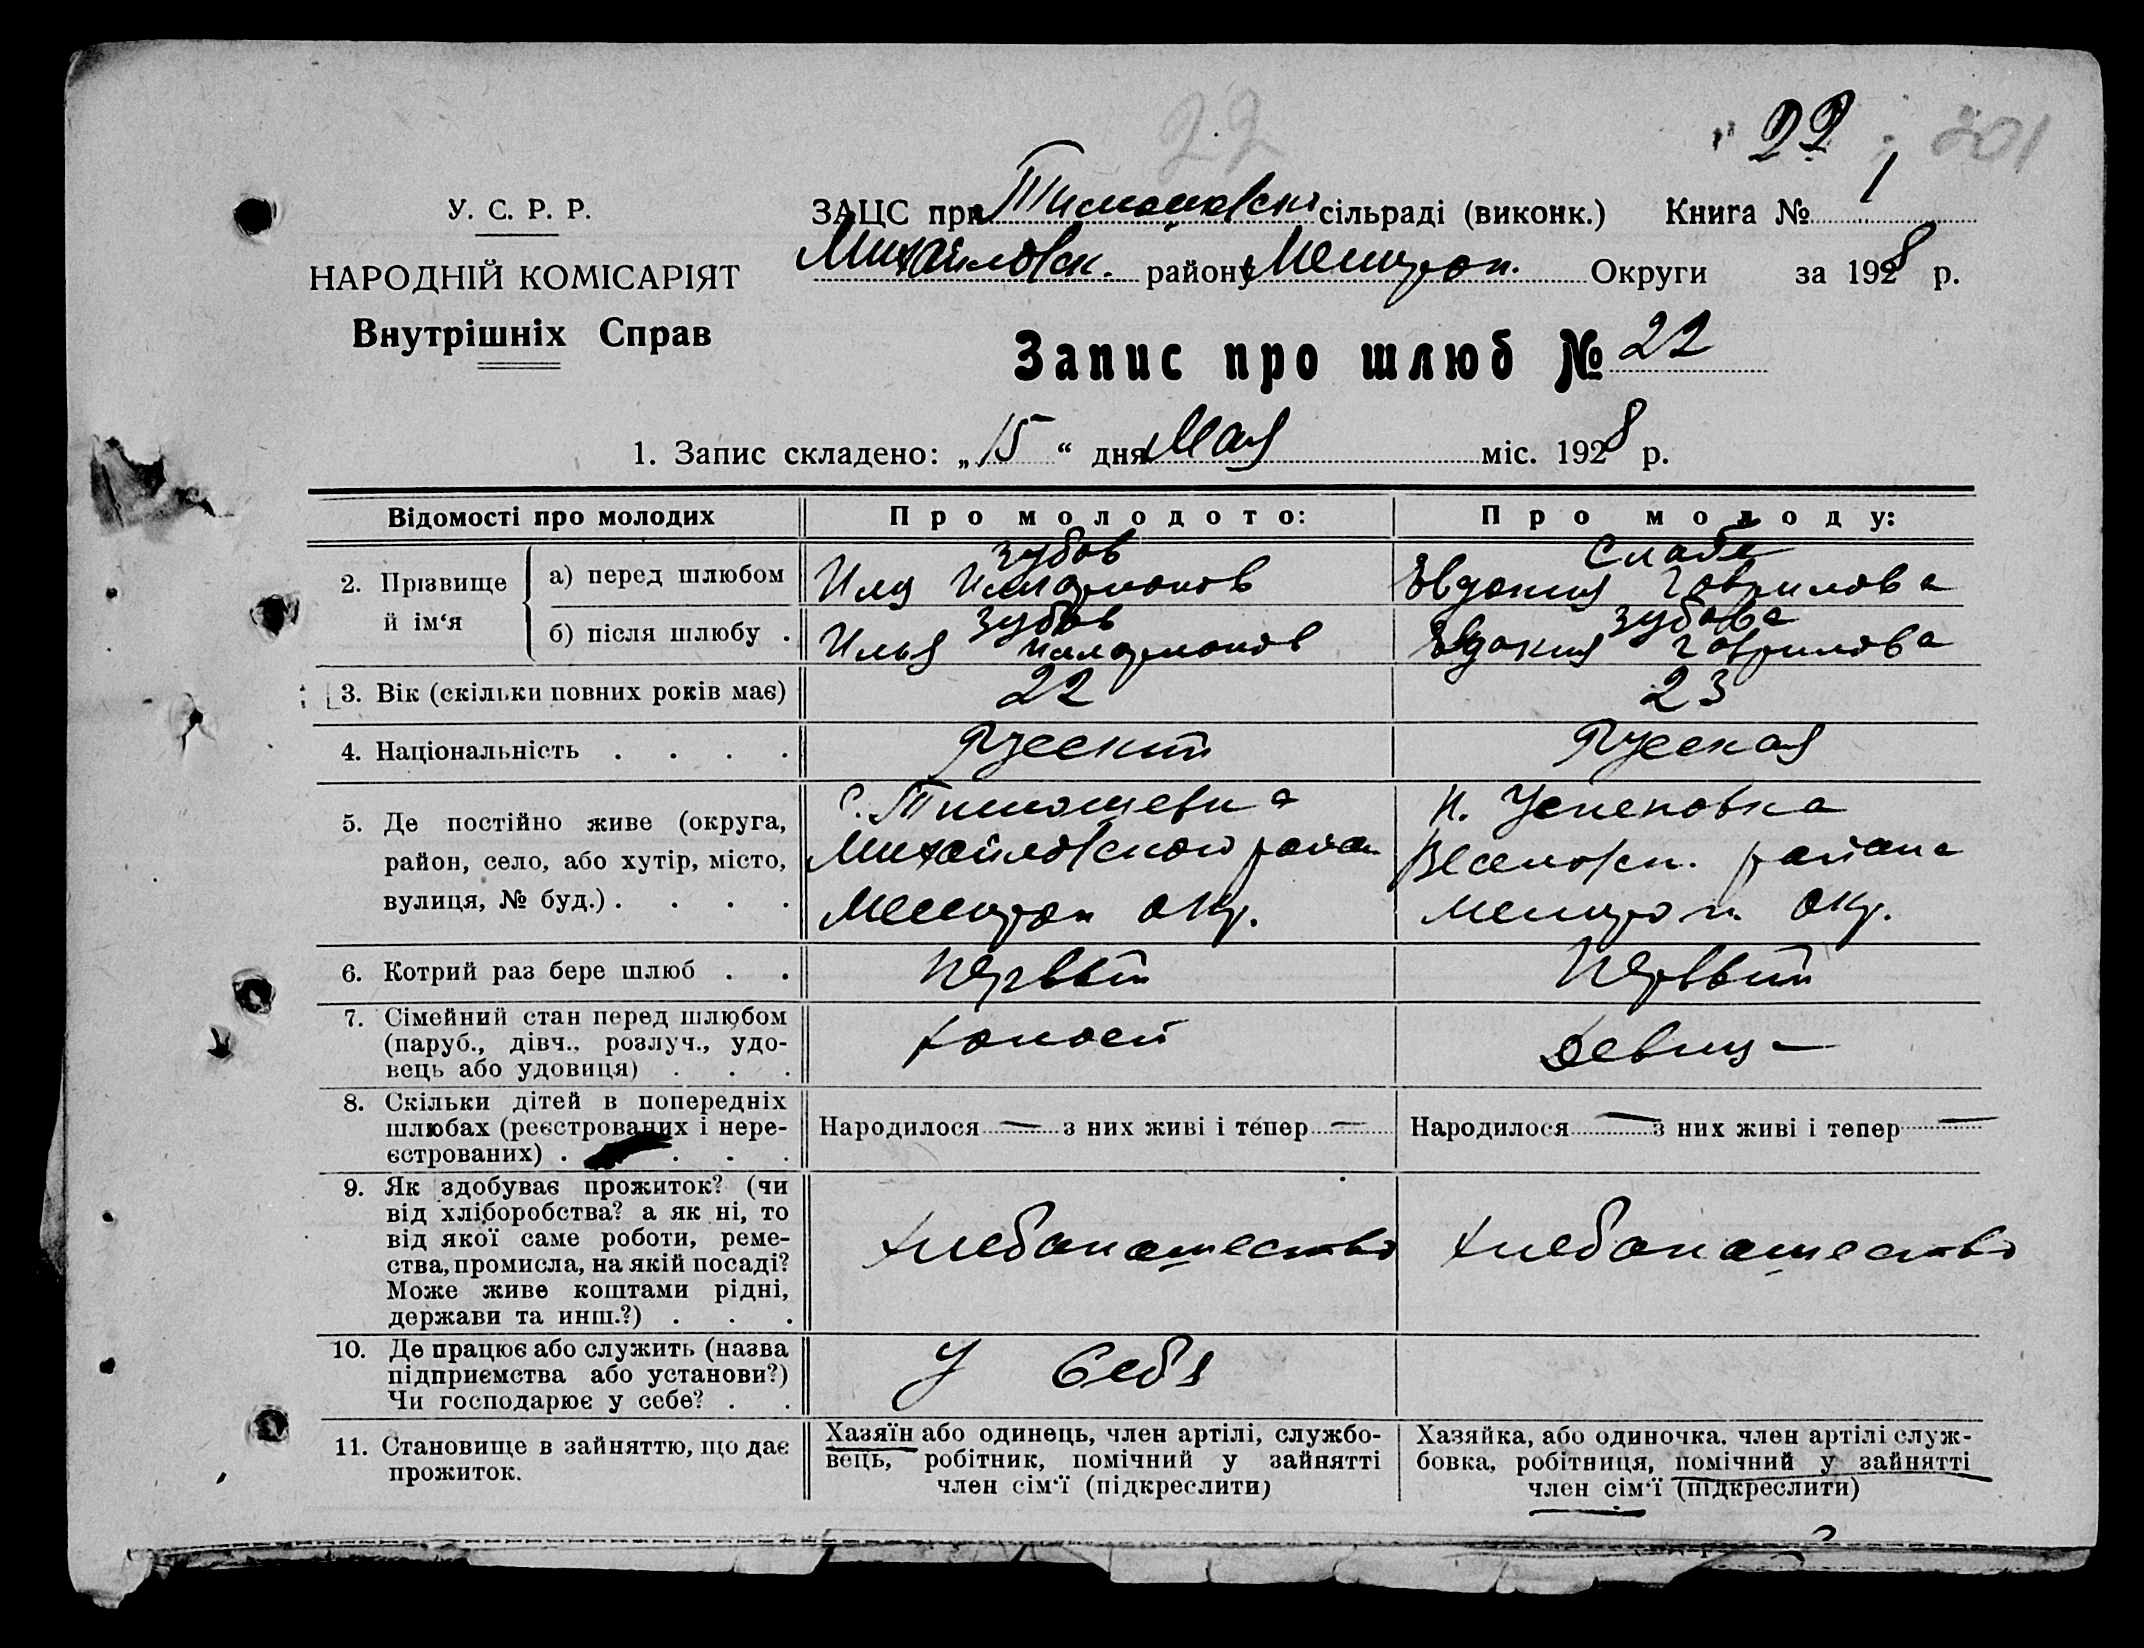 22
22 301
У. С. Р. Р.
НАРОДНІЙ КОМІСАРІЯТ
Внутрішніх Справ
ЗАЦС при сільраді (виконк.) Книга № 1
Михайловск. району Мелитоп. Округи за 1928 р.
Запис про шлюб № 22
1. Запис складено: „15“ дня Мая міс. 1928 р.
Відомості про молодих
Про молодого:
Про молоду:
2. Прізвище й ім‘я
а) перед шлюбом
Зубов
Илья
Евдокия Гаврилова
б) після шлюбу .
Зубов
Илья
Зубова
Евдокия Гаврилова
3. Вік (скільки повних років має)
22
23
4. Національність . . . .
Русский
Русская
5. Де постійно живе (округа,
район, село, або хутір, місто,
вулиця, № буд.) . . . .
с. Тимошевка
Михайловского район
Мелитоп окр.
Успеновка
Веселовск. района
Мелитоп. окр.
6. Котрий раз бере шлюб . .
Первый
Первый
7. Сімейний стан перед шлюбом
(паруб., дівч., розлуч., удо-
вець або удовиця) . . .
холост
девица
8. Скільки дітей в попередніх
шлюбах (реєстрованих і нере-
єстрованих) . . . .
Народилося — з них живі і тепер —
Народилося — з них живі і тепер —
9. Як здобуває прожиток? (чи
від хліборобства? а як ні, то
від якої саме роботи, реме-
ства, промисла, на якій посаді?
Може живе коштами рідні,
держави та инш.?) . . .
хлебопашество
хлебопашество
10. Де працює або служить (назва
підприємства або установи?)
Чи господарює у себе? . .
У себя
11. Становище в зайняттю, що дає
прожиток.
Хазяїн або одинець, член артілі, службо-
вець, робітник, помічний у зайнятті
член сім‘ї (підкреслити)
Хазяйка, або одиночка, член артілі служ-
бовка, робітниця, помічний у зайнятті
член сім‘ї (підкреслити)